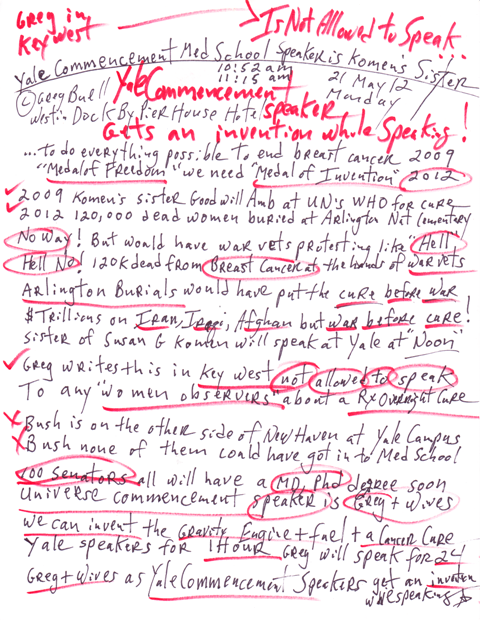 Greg in
Key West
Is Not Allowed to Speak...
Yale Commencement Med School Speaker is Komen's Sister
10:52 am
11:15 am
21 May 12
Monday
© Greg Buell
Westin Dock By Pier House Hotel
Yale Commencement
speaker
Gets an invention while Speaking!
...to do everything possible to end breast cancer 2009
"Medal of Freedom" we need "Medal of Invention" 2012
2009 Komen's sister Good will Amb at UN's WHO for cure
2012 120,000 dead women buried at Arlington Nat Cementary
No Way! But would have war vets protesting like "Hell"
Hell No! 120K dead from Breast Cancer at the hands of war vets
Arlington Burials would have put the cure before war
$Trillions on Iran, Iraqi, Afghan but war before cure!
sister of Susan G Komen will speak at Yale at "Noon"
Greg writes this in Key West not allowed to speak
To any "women observers" about a Rx Overnight Cure
Bush is on the other side of New Haven at Yale Campus
Bush none of them could have got in to Med School
100 Senators all will have a MD, PhD degree soon
Universe commencement speaker is Greg + Wives
we can invent the Gravity Engine + fuel + a Cancer Cure
Yale speakers for 1 Hour Greg will speak for 24
Greg + Wives as Yale Commencement Speakers get an invention
while speaking